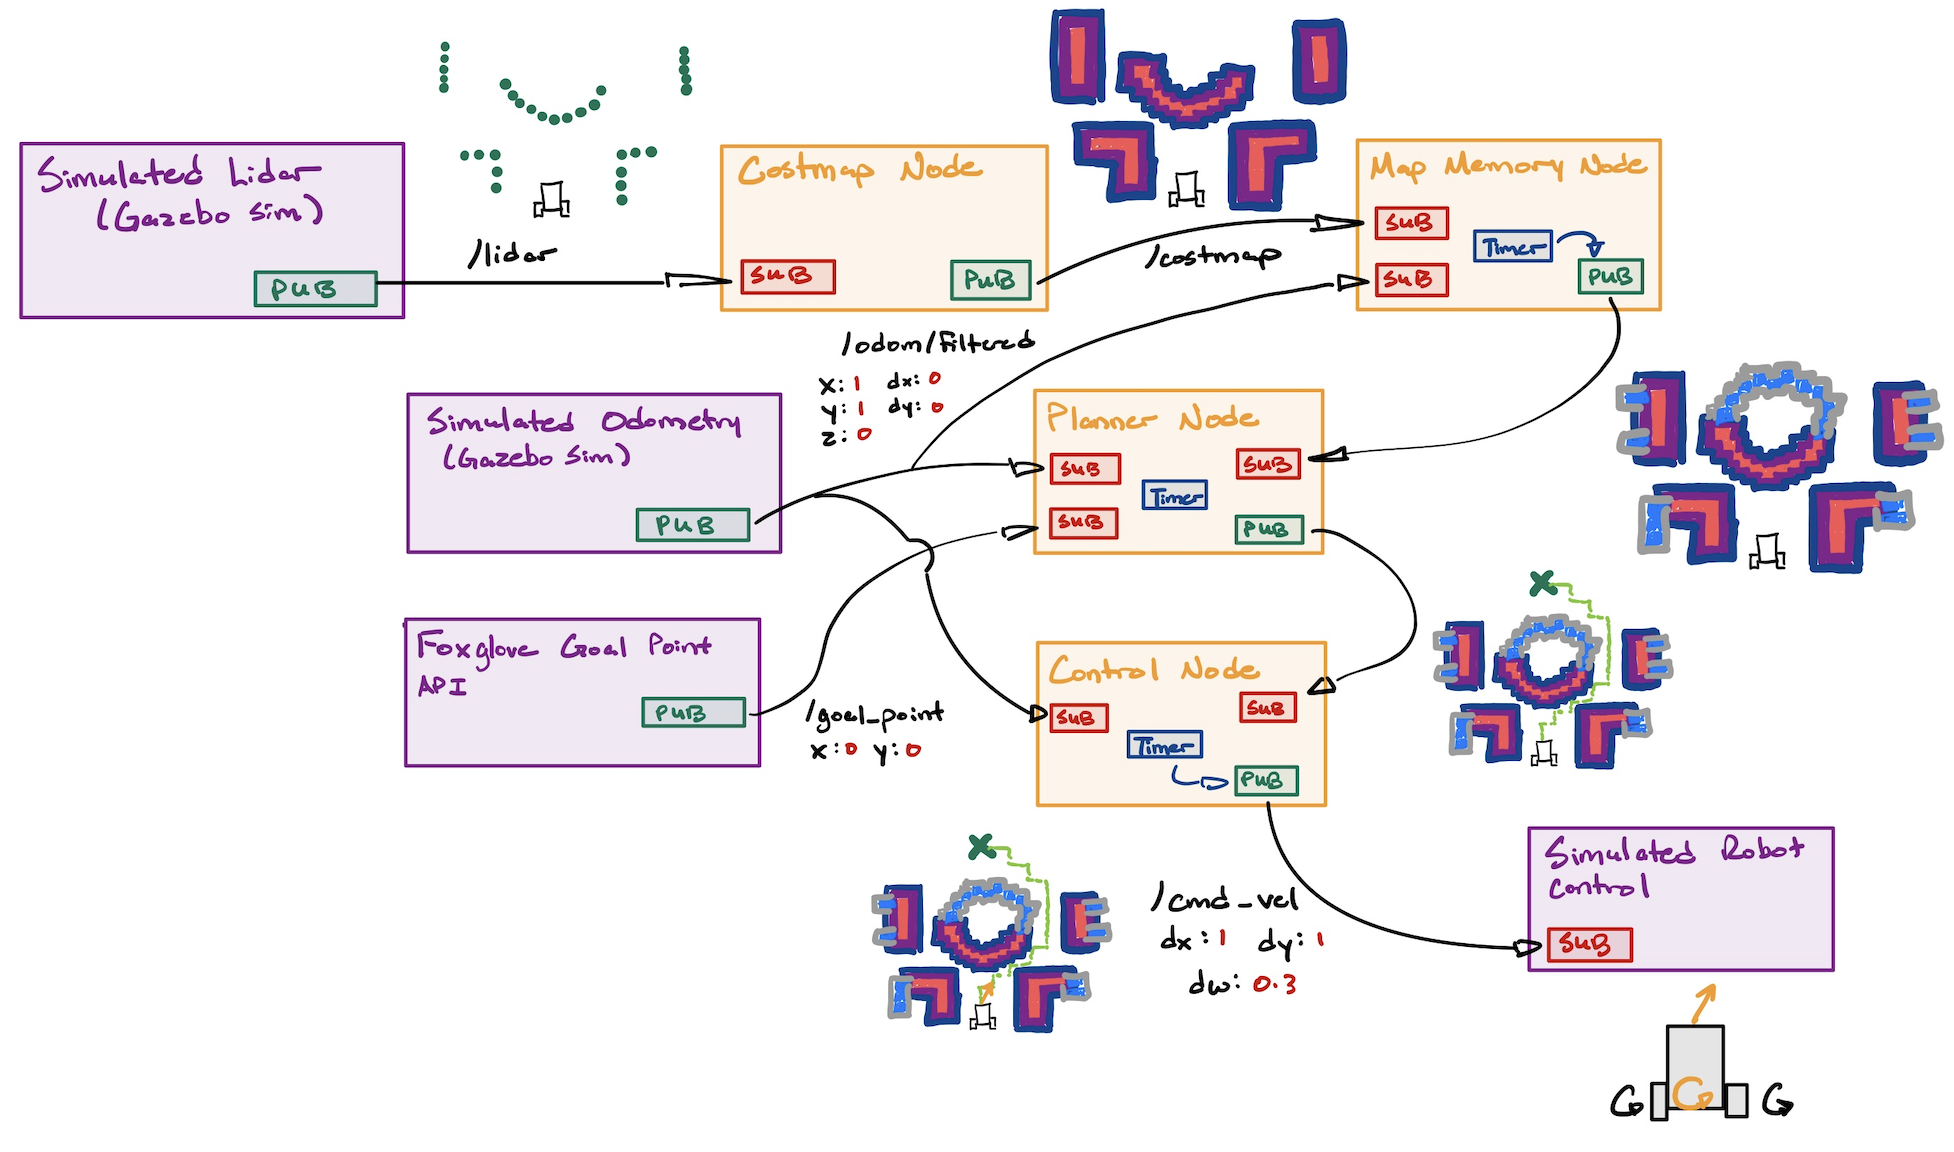 Simulated Lidar
(Gazebo Sim)
PUB
/lidar
Costmap Node
SUB
PUB
/costmap
Map Memory Node
SUB
Timer
SUB
PUB
/odom/filtered
x: 1 dx: 0
y: 1 dy: 0
z: 0
Simulated Odometry
(Gazebo Sim)
PUB
Planner Node
SUB
SUB
Timer
SUB
PUB
Foxglove Goal Point
API
PUB
/goal_point
x: 0 y: 0
Control Node
SUB
SUB
Timer
PUB
/cmd_vel
dx: 1 dy: 1
dw: 0.3
Simulated Robot
Control
SUB